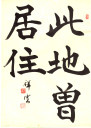 此地曾
居住